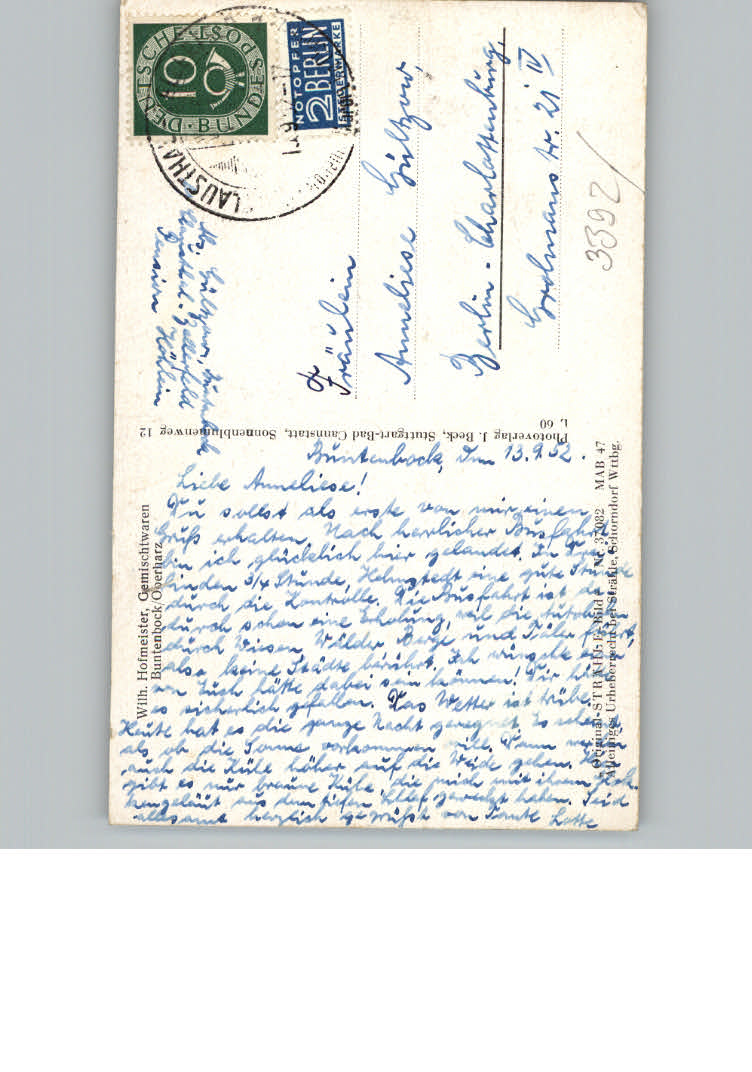 DEUTSCHE BUNDESPOST
10
NOTOPFER
2 BERLIN
STEUERMARKE
CLAUSTHAL
Clausthal-Zellerfeld
Pension
Fräulein
Anneliese Gültzow,
Berlin-Charlottenburg,
Grolmanstr. 21 IV
3392
Photoverlag J. Beck, Stuttgart-Bad Cannstatt, Sonnenblumenweg 12
L 60
Wilh. Hofmeister, Gemischtwaren
Buntenbock/Oberharz
Original-STRÄHLE-Bild Nr. 37082 MAB 47
Alleiniges Urheberrecht bei Strähle, Schorndorf Wttbg.
Buntenbock, den 13.9.52.
Liebe Anneliese!
Du sollst als erste von mir einen
Gruß erhalten. Nach herrlicher Busfahrt
bin ich glücklich hier gelandet. In
linden 3/4 Stunde, Helmstedt eine gute Stunde
durch die Kontrolle. Die Busfahrt ist
durch schon eine Erholung, weil die
durch Wiesen, Wälder, Berge und Täler führt,
also keine Städte berührt. Ich wünschte
von Euch hätte dabei sein können! Dir hätte
es sicherlich gefallen. Das Wetter ist trübe.
Heute hat es die ganze Nacht geregnet. Es scheint
als ob die Sonne vorkommen will. Dann werden
auch die Kühe höher auf die Weide gehen. Hier
gibt es nur braune Kühe, die mich mit ihrem
kengeläut aus dem tiefen Schlaf geweckt haben. Seid
allesamt herzlich gegrüßt von Tante Lotte